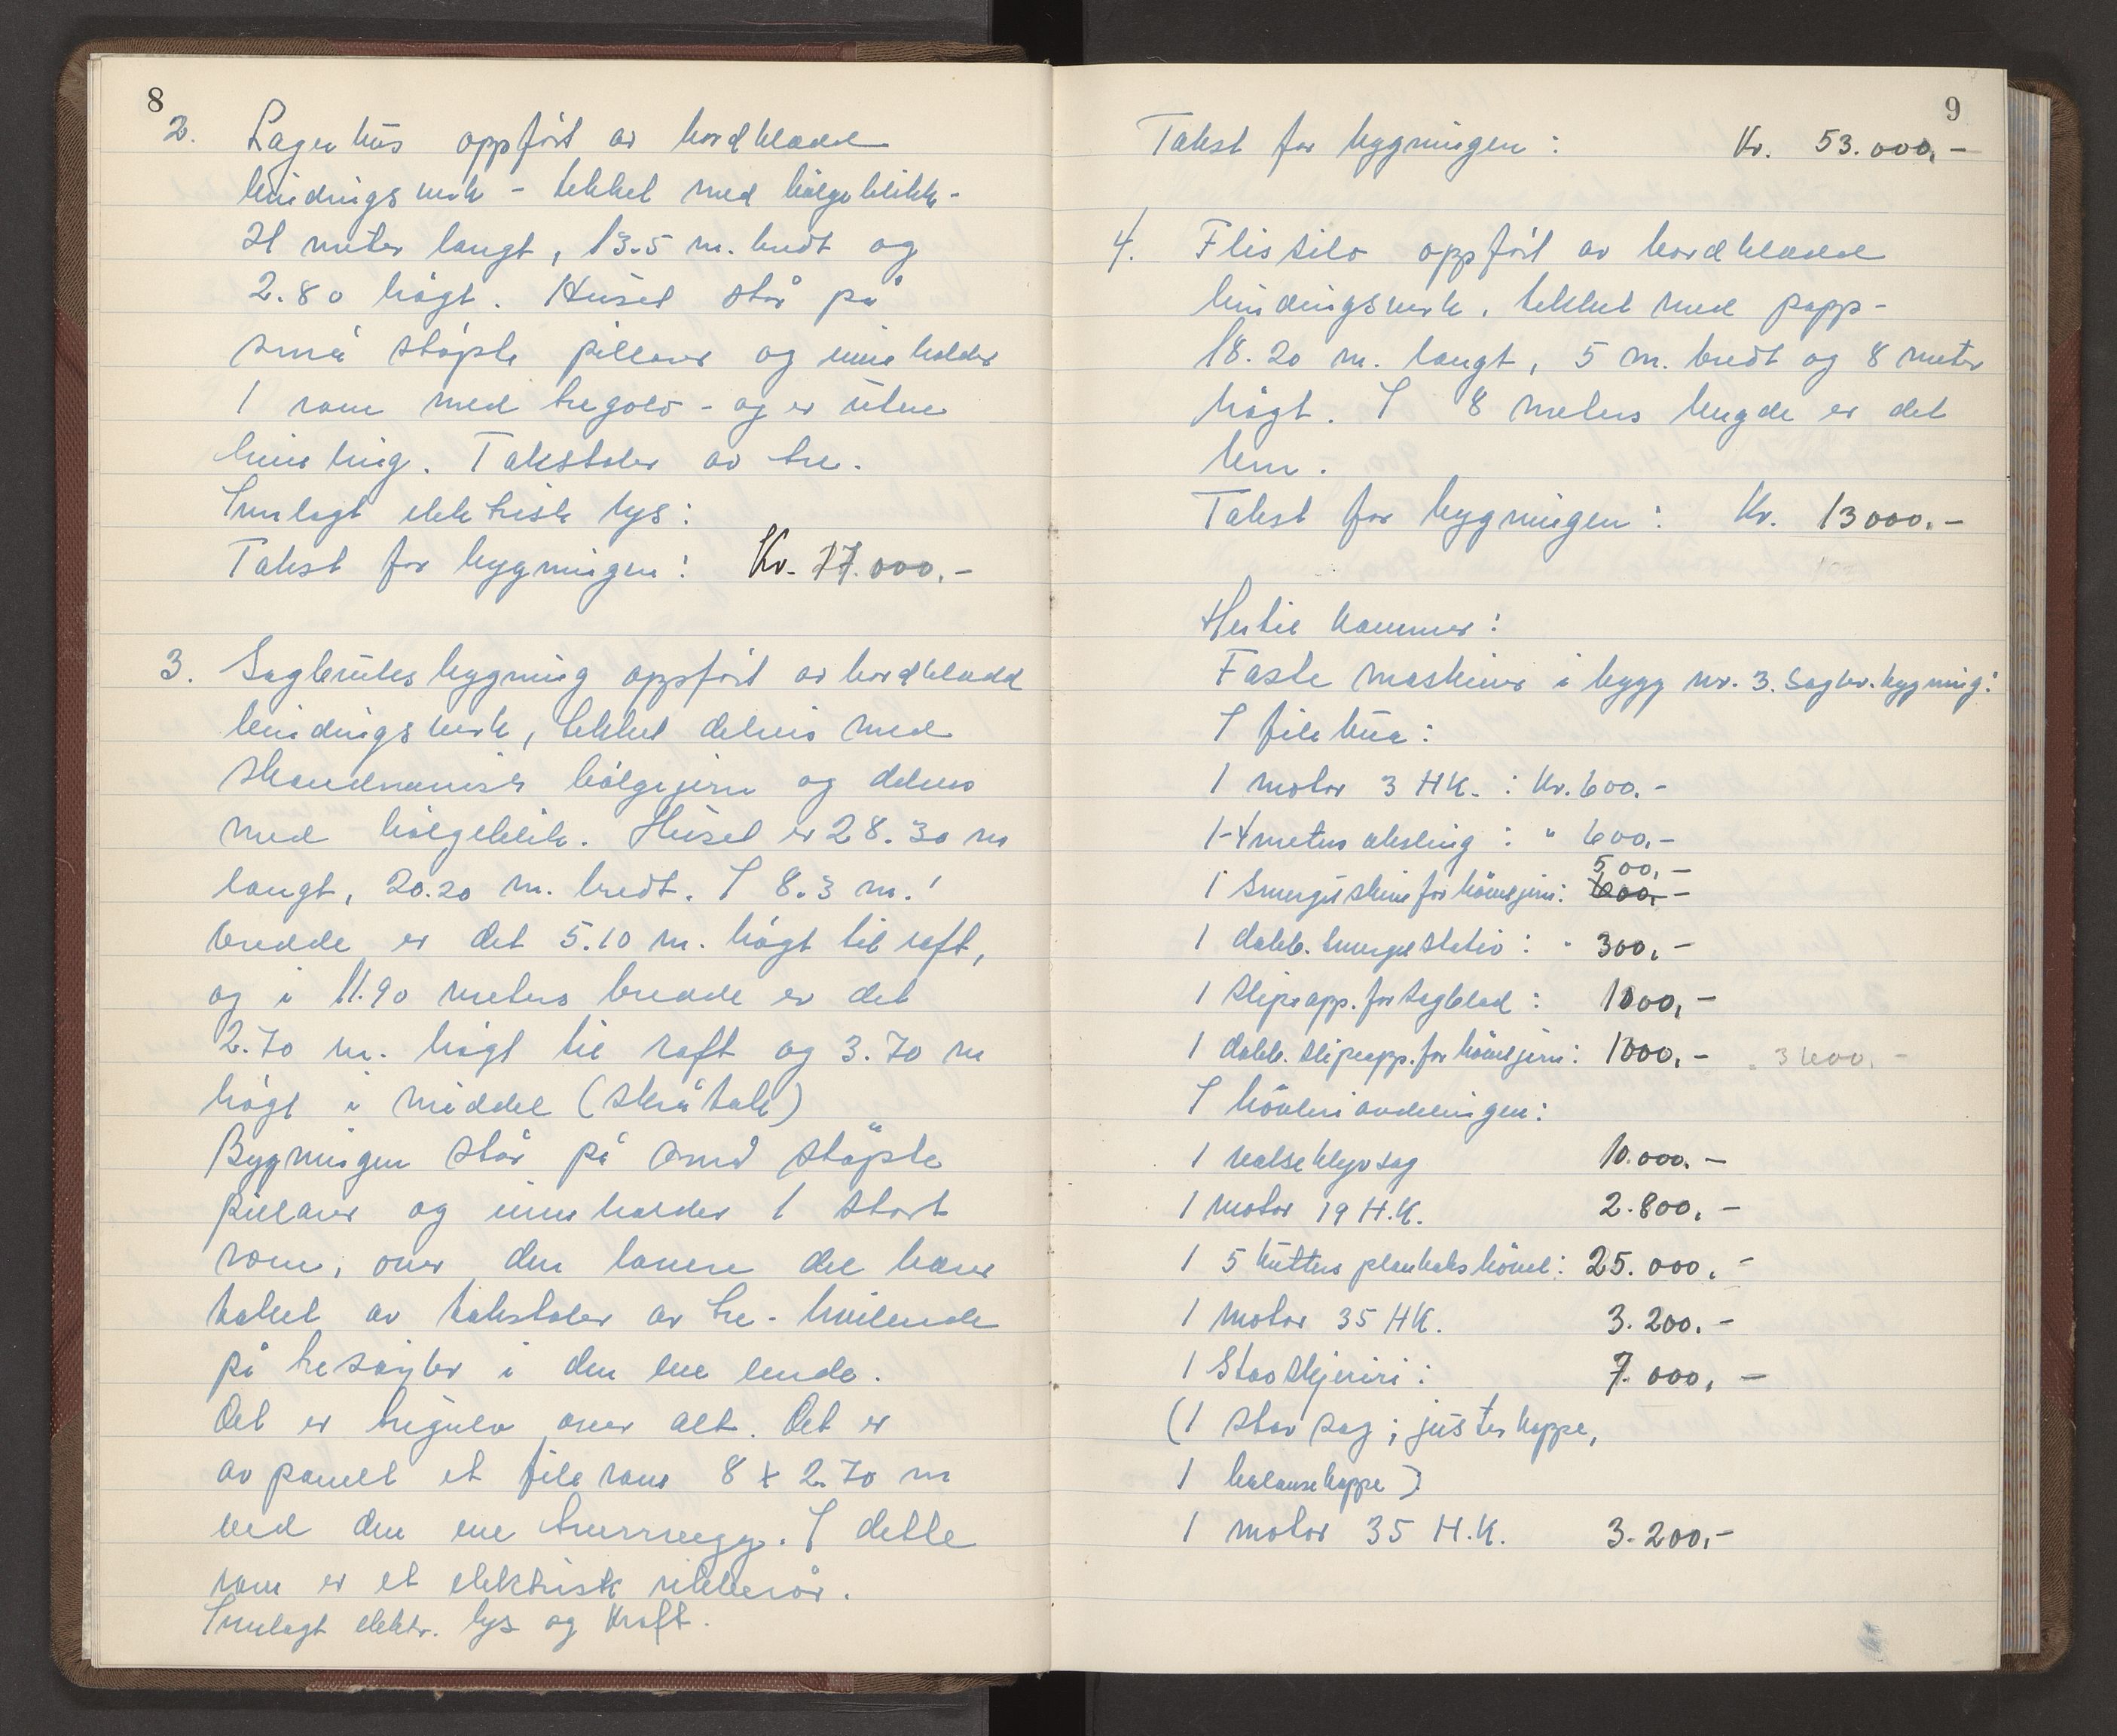 8
2. Lagerhus oppført av bordkledd
bindingsverk - tekket med bølgeblikk-
21 meter langt, 13.5 m. bredt og
2.80 høgt. Huset står på
små støpte pillarer og inneholder
1 rom med tregolv - og er uten
himling. Takstoler av tre.
Innlagt elektrisk lys:
Takst for bygningen: Kr. 17.000.-
3. Sagbruksbygning oppført av bordkledd
bindingsverk, tekket delvis med
skandinavisk bølgejern og delvis
med bølgeblik. Huset er 28.30 m
langt, 20.20 m. bredt. I 8.3 m.'
bredde er det 5.10 m. høgt til raft,
og i 11.90 meters bredde er det
2.70 m. høgt til raft og 3.70 m
høgt i middel (skråtak)
Bygningen står på små støpte
pillarer og inneholder 1 stort
rom, over den lavere del bæres
taket av takstoler av tre - hvilende
på tresøyler i den ene ende.
Det er tregulv over alt. Det er
avpanelt et filerom 8 x 2.70 m
ved den ene tverrvegg. I dette
rom er et elektrisk ribberør.
Innlagt elektr. lys og kraft.
9
Takst for bygningen: Kr. 53.000.-
4. Flissilo oppført av bordkledd
bindingsverk, tekket med papp-
18.20 m. langt, 5 m. bredt og 8 meter
høgt. I 8 meters lengde er det
lem.
Takst for bygningen: Kr. 13000.-
Hertil kommer:
Faste maskiner i bygg nr. 3. Sagbr. bygning:
I filebua:
1 motor 3 HK. : Kr. 600.-
1-4 meters aksling : " 600.-
500.-
1 Smergelskive for høveljern: 600.-
1 dobb. smergelstativ : " 300.-
1 slipeapp. for sagblad : 1000.-
1 dobb. slipeapp. for høveljern: 1000.- 3600.-
I høvleriavdelingen:
1 valseklyvsag 10.000.-
1 motor 19 H.K. 2.800.-
1 5 kutters plankakshøvel: 25.000.-
1 motor 35 HK. 3.200.-
1 Stavskjereri : 7.000.-
(1 stav sag; justerkappe,
1 balansekappe)
1 motor 35 H.K. 3.200.-